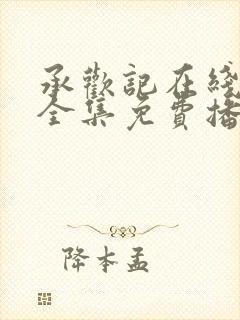 承歡記在綫
全集免費播
降本孟